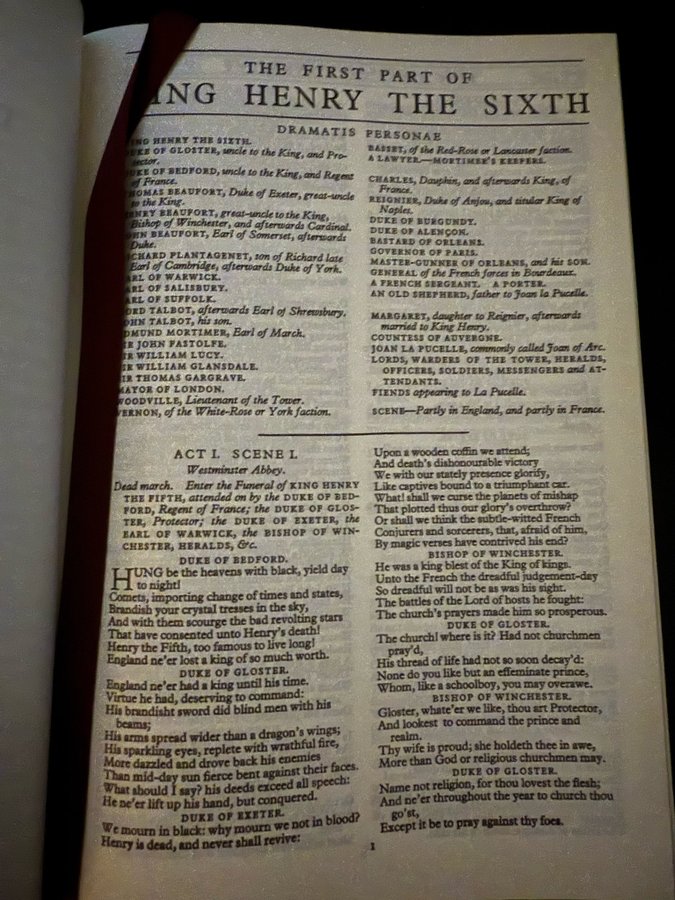 THE FIRST PART OF
ING HENRY THE SIXTH
DRAMATIS PERSONAE
ING HENRY THE SIXTH.
UKE OF GLOSTER, uncle to the King, and Pro-
tector.
UKE OF BEDFORD, uncle to the King, and Regent
of France.
HOMAS BEAUFORT, Duke of Exeter, great-uncle
to the King.
ENRY BEAUFORT, great-uncle to the King,
Bishop of Winchester, and afterwards Cardinal.
HN BEAUFORT, Earl of Somerset, afterwards
Duke.
CHARD PLANTAGENET, son of Richard late
Earl of Cambridge, afterwards Duke of York.
ARL OF WARWICK.
ARL OF SALISBURY.
ARL OF SUFFOLK.
ORD TALBOT, afterwards Earl of Shrewsbury.
OHN TALBOT, his son.
DMUND MORTIMER, Earl of March.
IR JOHN FASTOLFE.
IR WILLIAM LUCY.
IR WILLIAM GLANSDALE.
IR THOMAS GARGRAVE.
MAYOR OF LONDON.
WOODVILLE, Lieutenant of the Tower.
VERNON, of the White-Rose or York faction.
BASSET, of the Red-Rose or Lancaster faction.
A LAWYER.—MORTIMER'S KEEPERS.
CHARLES, Dauphin, and afterwards King, of
France.
REIGNIER, Duke of Anjou, and titular King of
Naples.
DUKE OF BURGUNDY.
DUKE OF ALENÇON.
BASTARD OF ORLEANS.
GOVERNOR OF PARIS.
MASTER-GUNNER OF ORLEANS, and his SON.
GENERAL of the French forces in Bourdeaux.
A FRENCH SERGEANT. A PORTER.
AN OLD SHEPHERD, father to Joan la Pucelle.
MARGARET, daughter to Reignier, afterwards
married to King Henry.
COUNTESS OF AUVERGNE.
JOAN LA PUCELLE, commonly called Joan of Arc.
LORDS, WARDERS OF THE TOWER, HERALDS,
OFFICERS, SOLDIERS, MESSENGERS and AT-
TENDANTS.
FIENDS appearing to La Pucelle.
SCENE—Partly in England, and partly in France.
ACT I. SCENE I.
Westminster Abbey.
Dead march. Enter the Funeral of KING HENRY
THE FIFTH, attended on by the DUKE OF BED-
FORD, Regent of France; the DUKE OF GLOS-
TER, Protector; the DUKE OF EXETER, the
EARL OF WARWICK, the BISHOP OF WIN-
CHESTER, HERALDS, &c.
DUKE OF BEDFORD.
HUNG be the heavens with black, yield day
to night!
Comets, importing change of times and states,
Brandish your crystal tresses in the sky,
And with them scourge the bad revolting stars
That have consented unto Henry's death!
Henry the Fifth, too famous to live long!
England ne'er lost a king of so much worth.
DUKE OF GLOSTER.
England ne'er had a king until his time.
Virtue he had, deserving to command:
His brandisht sword did blind men with his
beams;
His arms spread wider than a dragon's wings;
His sparkling eyes, replete with wrathful fire,
More dazzled and drove back his enemies
Than mid-day sun fierce bent against their faces.
What should I say? his deeds exceed all speech:
He ne'er lift up his hand, but conquered.
DUKE OF EXETER.
We mourn in black: why mourn we not in blood?
Henry is dead, and never shall revive:
Upon a wooden coffin we attend;
And death's dishonourable victory
We with our stately presence glorify,
Like captives bound to a triumphant car.
What! shall we curse the planets of mishap
That plotted thus our glory's overthrow?
Or shall we think the subtle-witted French
Conjurers and sorcerers, that, afraid of him,
By magic verses have contrived his end?
BISHOP OF WINCHESTER.
He was a king blest of the King of kings.
Unto the French the dreadful judgement-day
So dreadful will not be as was his sight.
The battles of the Lord of hosts he fought:
The church's prayers made him so prosperous.
DUKE OF GLOSTER.
The church! where is it? Had not churchmen
pray'd,
His thread of life had not so soon decay'd:
None do you like but an effeminate prince,
Whom, like a schoolboy, you may overawe.
BISHOP OF WINCHESTER.
Gloster, whate'er we like, thou art Protector,
And lookest to command the prince and
realm.
Thy wife is proud; she holdeth thee in awe,
More than God or religious churchmen may.
DUKE OF GLOSTER.
Name not religion, for thou lovest the flesh;
And ne'er throughout the year to church thou
go'st,
Except it be to pray against thy foes.
1